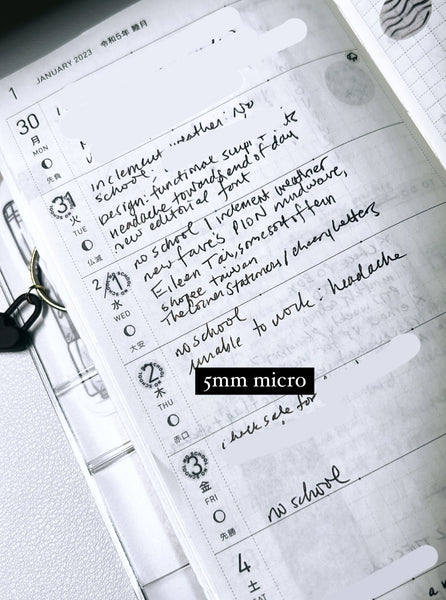 1 JANUARY 2023 令和5年 睦月
30
月
MON
先負
inclement weather: No
school.
31
火
TUE
仏滅
Design: functional script
headache towards end of day
new editorial font
2/1
水
WED
大安
no school | inclement weather
new faves PION mudwave,
Eileen Tai, some sort of fern
shopee taiwan
The Corner Stationers / cherry letters
2
木
THU
赤口
no school
unable to work: headache
5mm micro
3
金
FRI
先勝
check sale for
no school
4
土
SAT